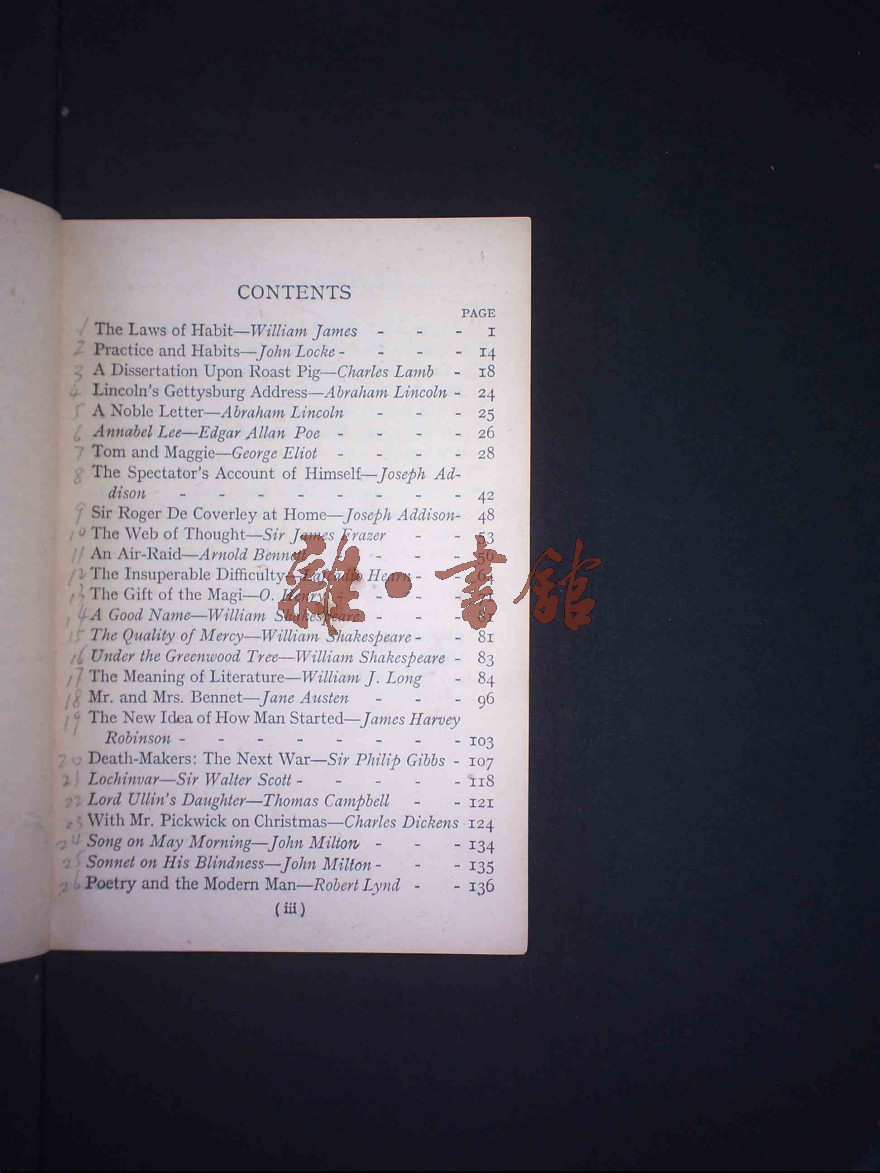 CONTENTS
PAGE
1 The Laws of Habit—William James - - - 1
2 Practice and Habits—John Locke - - - - 14
3 A Dissertation Upon Roast Pig—Charles Lamb - 18
4 Lincoln's Gettysburg Address—Abraham Lincoln - 24
5 A Noble Letter—Abraham Lincoln - - - 25
6 Annabel Lee—Edgar Allan Poe - - - - 26
7 Tom and Maggie—George Eliot - - - - 28
8 The Spectator's Account of Himself—Joseph Ad-
dison - - - - - - - - 42
9 Sir Roger De Coverley at Home—Joseph Addison- 48
10 The Web of Thought—Sir James Frazer - - 53
11 An Air-Raid—Arnold Bennett - - - 56
12 The Insuperable Difficulty—Lafcadio Hearn - - 64
13 The Gift of the Magi—O. Henry - - - -
14 A Good Name—William Shakespeare - - - 81
15 The Quality of Mercy—William Shakespeare - - 81
16 Under the Greenwood Tree—William Shakespeare - 83
17 The Meaning of Literature—William J. Long - 84
18 Mr. and Mrs. Bennet—Jane Austen - - - 96
19 The New Idea of How Man Started—James Harvey
Robinson - - - - - - - - 103
20 Death-Makers: The Next War—Sir Philip Gibbs - 107
21 Lochinvar—Sir Walter Scott - - - - - 118
22 Lord Ullin's Daughter—Thomas Campbell - - 121
23 With Mr. Pickwick on Christmas—Charles Dickens 124
24 Song on May Morning—John Milton - - - 134
25 Sonnet on His Blindness—John Milton - - - 135
26 Poetry and the Modern Man—Robert Lynd - - 136
(iii)
書館